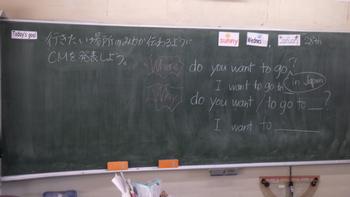 Today's goal
行きたい場所のみりょくが伝わるように
CMを発表しよう。
sunny Wednesday January 28th
Where do you want to go?
I want to go to in Japan
Why do you want to go to __?
I want to ____